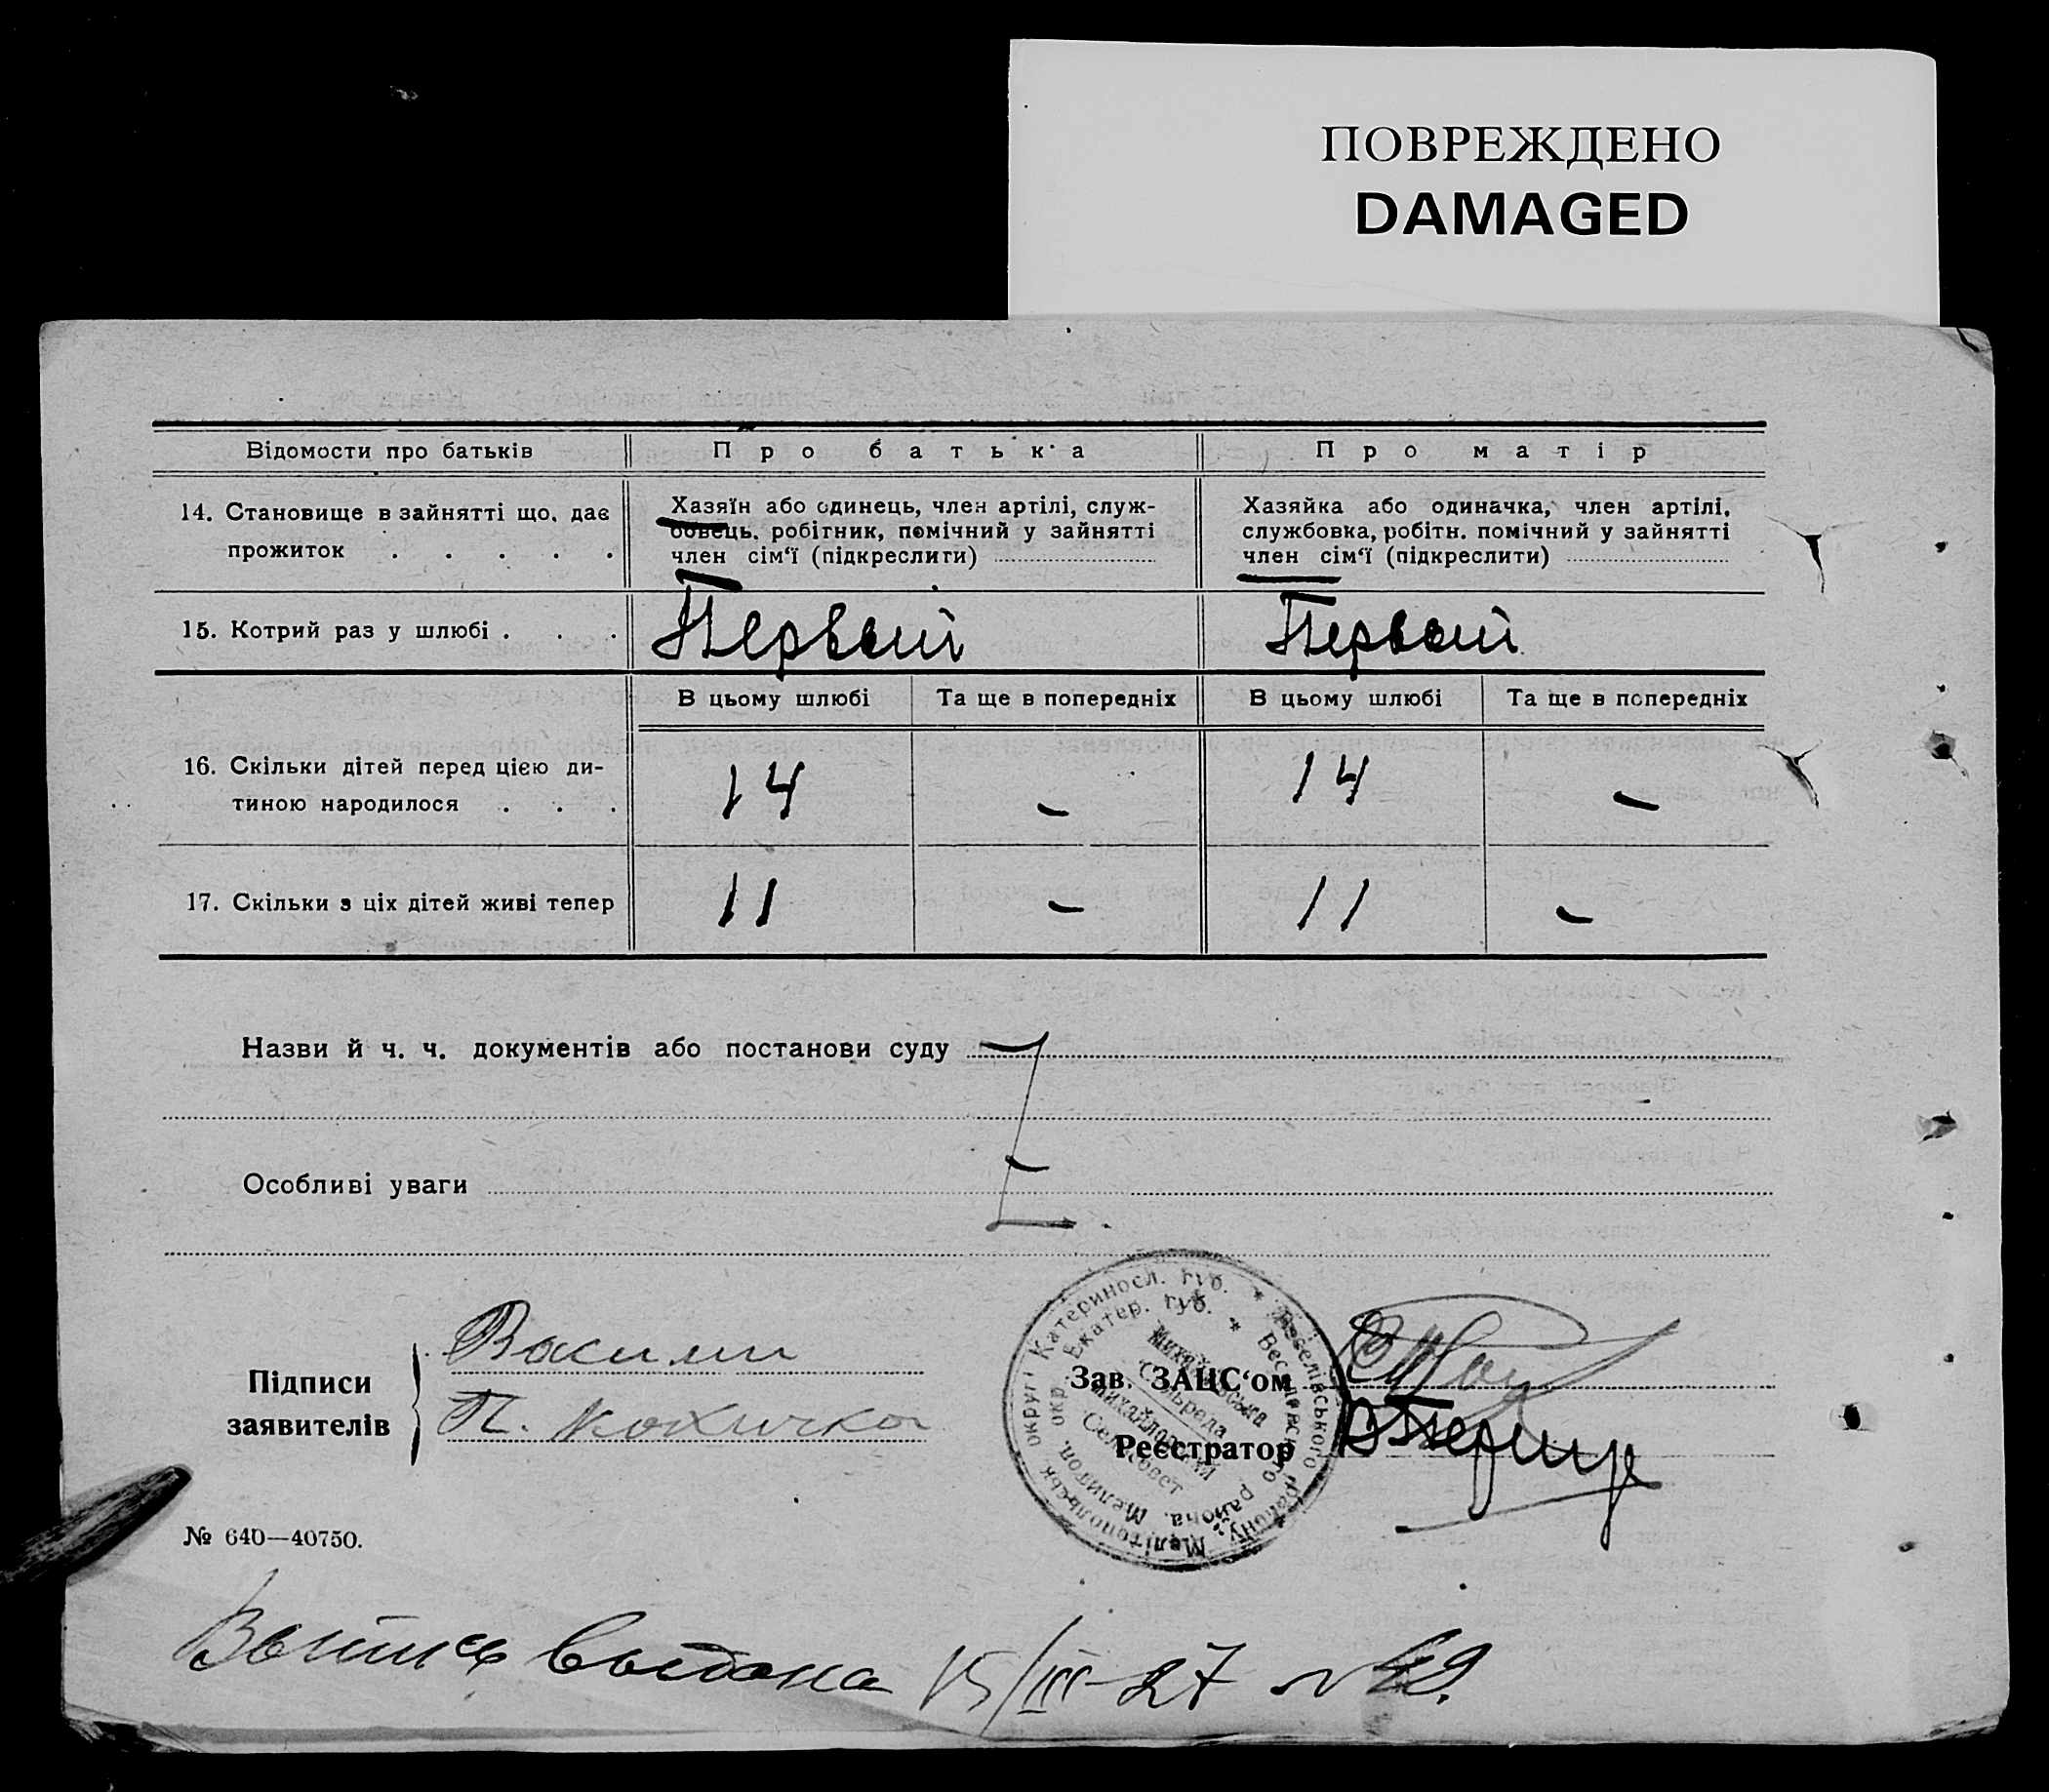 ПОВРЕЖДЕНО
DAMAGED
Відомости про батьків
Про батька
Про матір
14. Становище в зайнятті що, дає
прожиток . . . . .
Хазяїн або одинець, член артілі, служ-
бовець, робітник, помічний у зайнятті
член сім‘ї (підкреслити)
Хазяйка або одиначка, член артілі,
службовка, робітн. помічний у зайнятті
член сім‘ї (підкреслити)
15. Котрий раз у шлюбі . . .
Первый
Первый
В цьому шлюбі
Та ще в попередніх
В цьому шлюбі
Та ще в попередніх
16. Скільки дітей перед цією ди-
тиною народилося . . .
14
–
14
–
17. Скільки з ціх дітей живі тепер
11
–
11
–
Назви й ч. ч. документів або постанови суду
Особливі уваги
Підписи
заявителів
Васили
П. Кохичко
Катериносл. губ. * Веселівського району, Мелітопольськ. округи
Екатер. губ. * Веселовского района. Мелитоп. окр.
Михайлівська
Сільрада
Михайловский
Сельсовет
Зав. ЗАЦС‘ом
Реєстратор
№ 640—40750.
Выпись выдана 15/III-27 № 49.